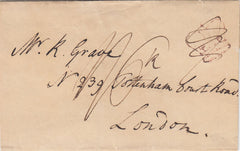 Mr. K. Grave
No 239 Tottenham Court Road
London.